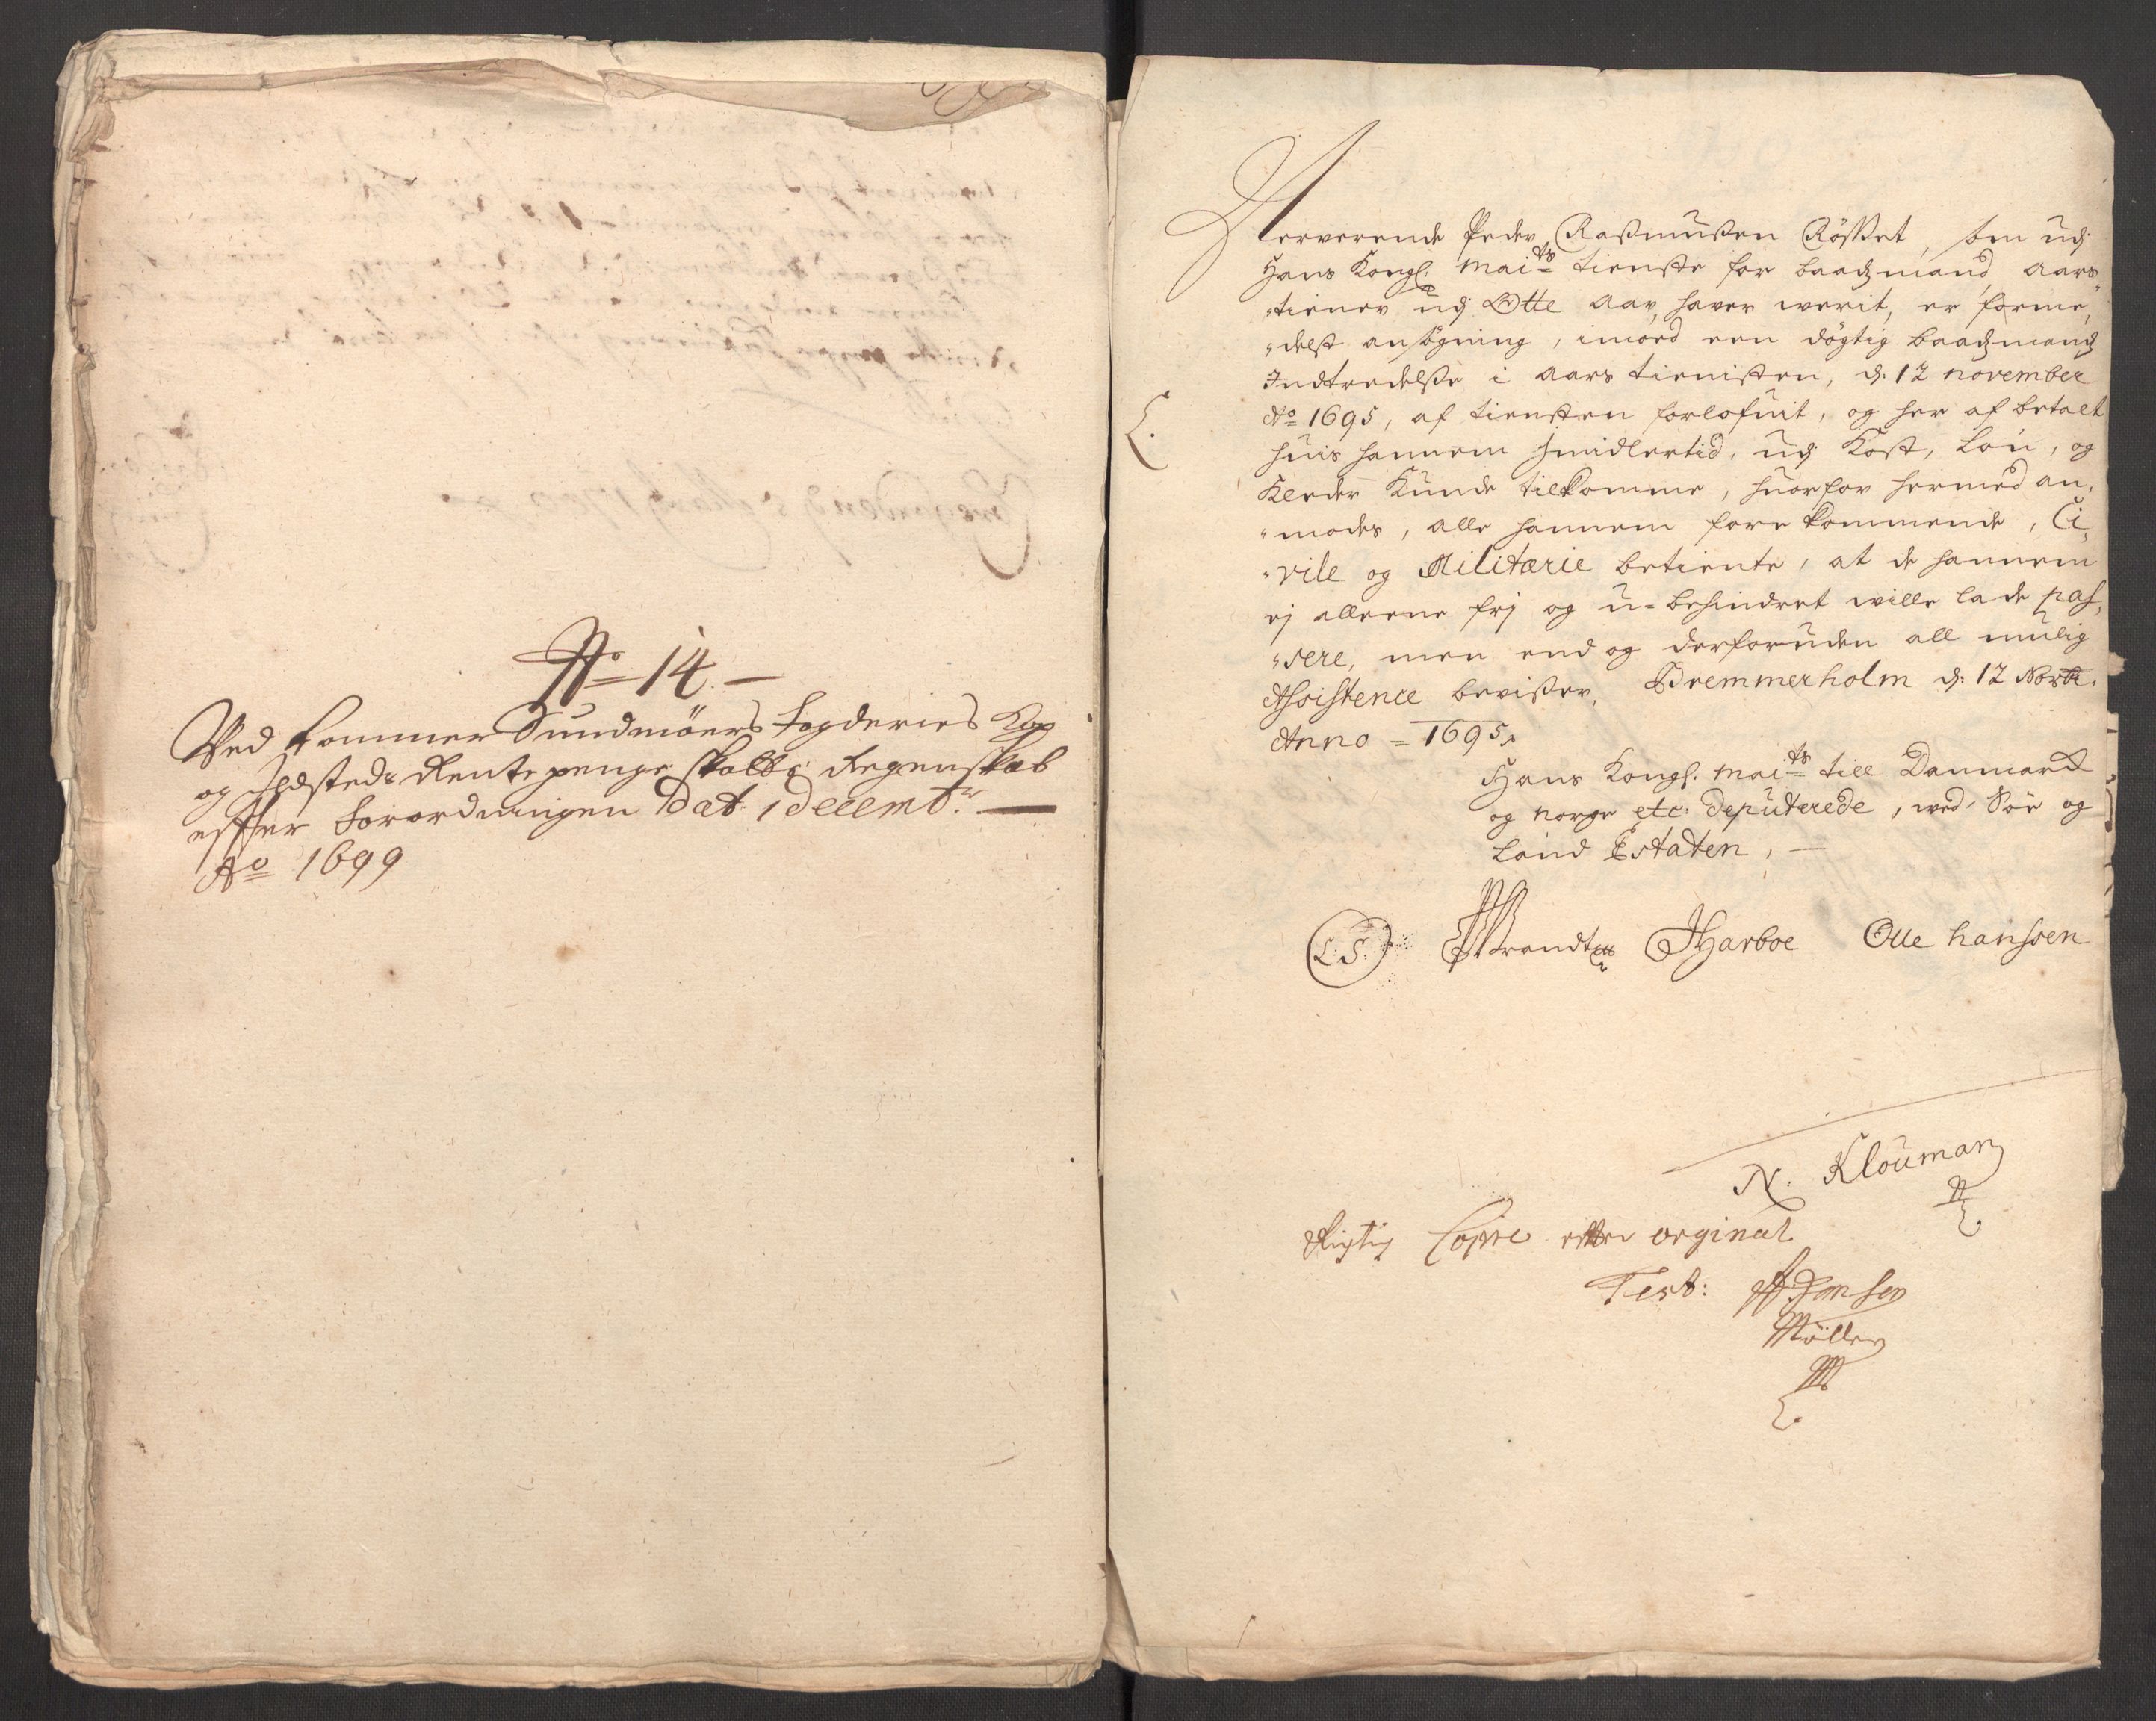 No 14.
Ved kommer Sundmörs Fogderies Kop
og Ildsteds Rente penge Skatts Regenskab
effter Forordningen Dat 1 Decembr.
Ao 1699
Nerverende Peder Rasmusen Rösset, som udj
Hans Kongl. Maits tienste for baadzmand, aars
tiener udj Otte aar, haver werit, er forme
delst ansögning, imod een dögtig baadzmands
Indtredelsse i aars tienisten, d: 12 november
Ao 1695, af tiensten forlofuit, og her af betalt
huis hannem imidlertid, udj Kost, Lön, og
Kleder Kunde tilkomme, huorfor hermed an
modes, alle hannem fore kommende, Ci
vile og Militærie betiente, at de hannem
ej alleene frj og u-behindret wille lade pas
sere, men end og derforuden all mulig
Assistence beviser, Bremmerholm d: 12 Novbr.
Anno = 1695.
Hans Kongl. Maits till Danmark
og Norge etc: Deputerede, wed Söe og
Land Estaten,
L:S: Brandt JHarboe Olle hanssen
N. Klouman
Rigtig Copie effter orginal
Test: Jensen
Möller